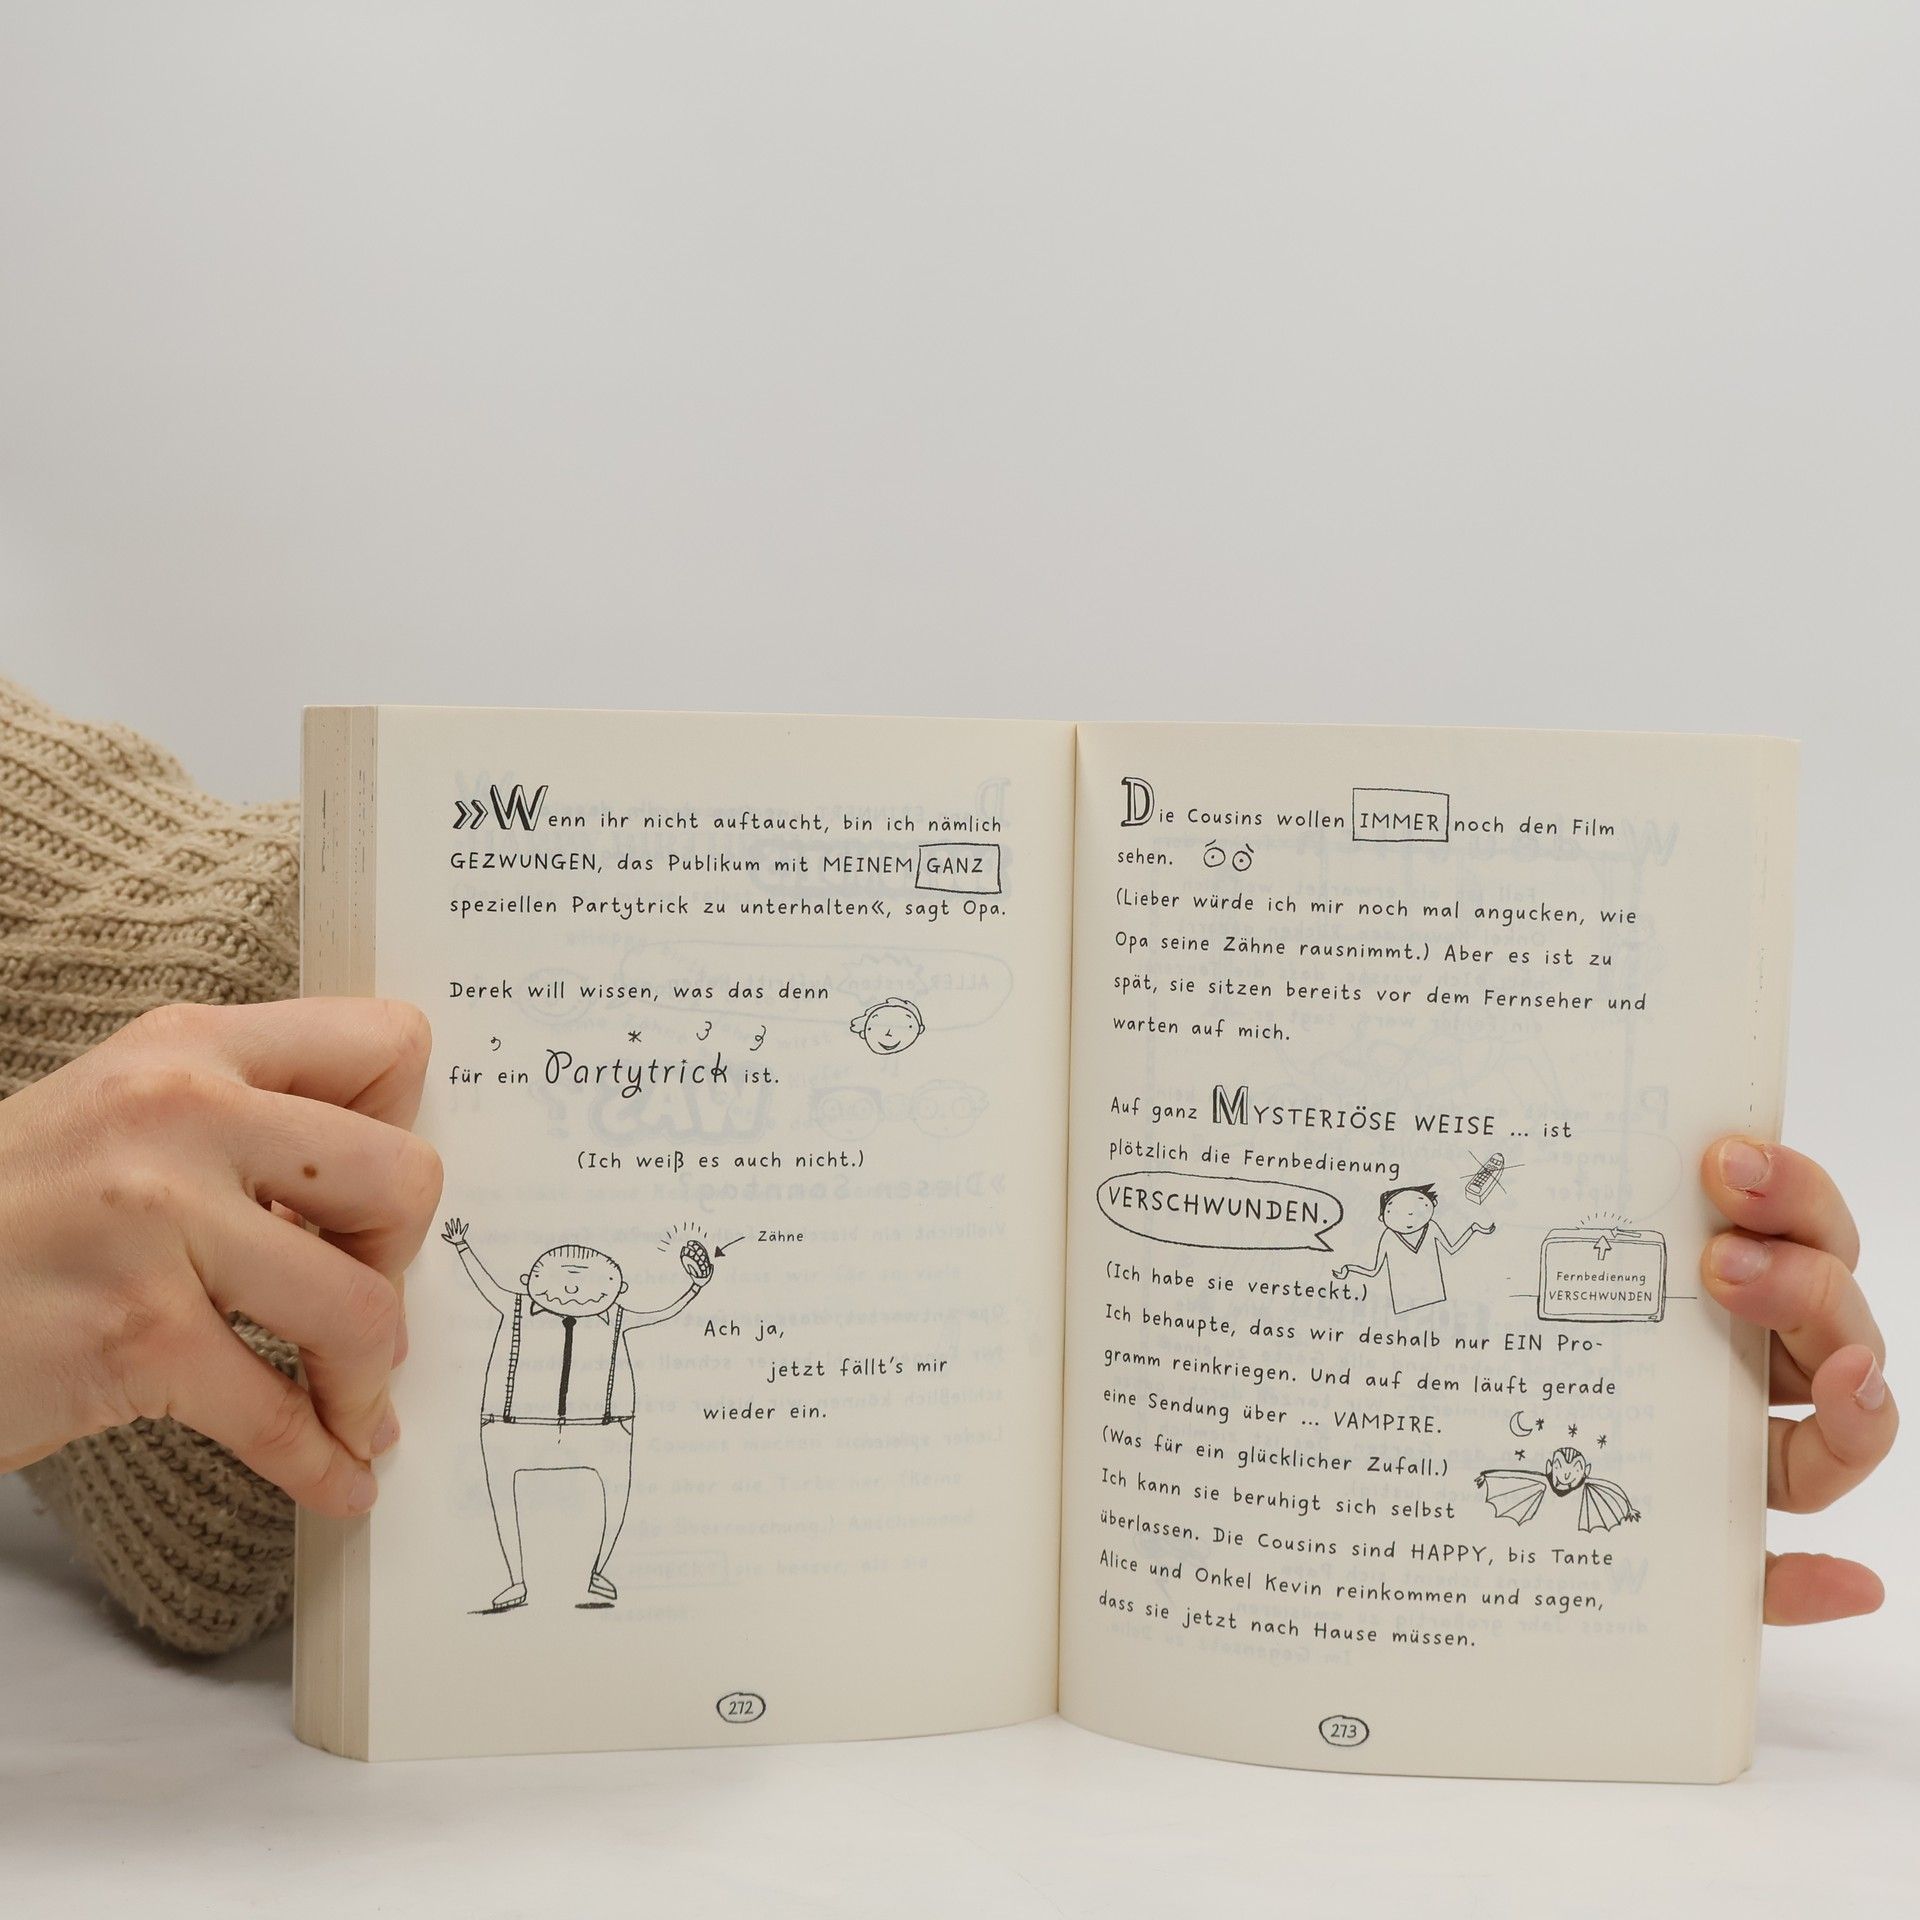 »Wenn ihr nicht auftaucht, bin ich nämlich
GEZWUNGEN, das Publikum mit MEINEM GANZ
speziellen Partytrick zu unterhalten«, sagt Opa.
Derek will wissen, was das denn
für ein Partytrick ist.
(Ich weiß es auch nicht.)
Zähne
Ach ja,
jetzt fällt's mir
wieder ein.
272
Die Cousins wollen IMMER noch den Film
sehen.
(Lieber würde ich mir noch mal angucken, wie
Opa seine Zähne rausnimmt.) Aber es ist zu
spät, sie sitzen bereits vor dem Fernseher und
warten auf mich.
Auf ganz MYSTERIÖSE WEISE ... ist
plötzlich die Fernbedienung
VERSCHWUNDEN.
Fernbedienung
VERSCHWUNDEN
(Ich habe sie versteckt.)
Ich behaupte, dass wir deshalb nur EIN Pro-
gramm reinkriegen. Und auf dem läuft gerade
eine Sendung über ... VAMPIRE.
(Was für ein glücklicher Zufall.)
Ich kann sie beruhigt sich selbst
überlassen. Die Cousins sind HAPPY, bis Tante
Alice und Onkel Kevin reinkommen und sagen,
dass sie jetzt nach Hause müssen.
273